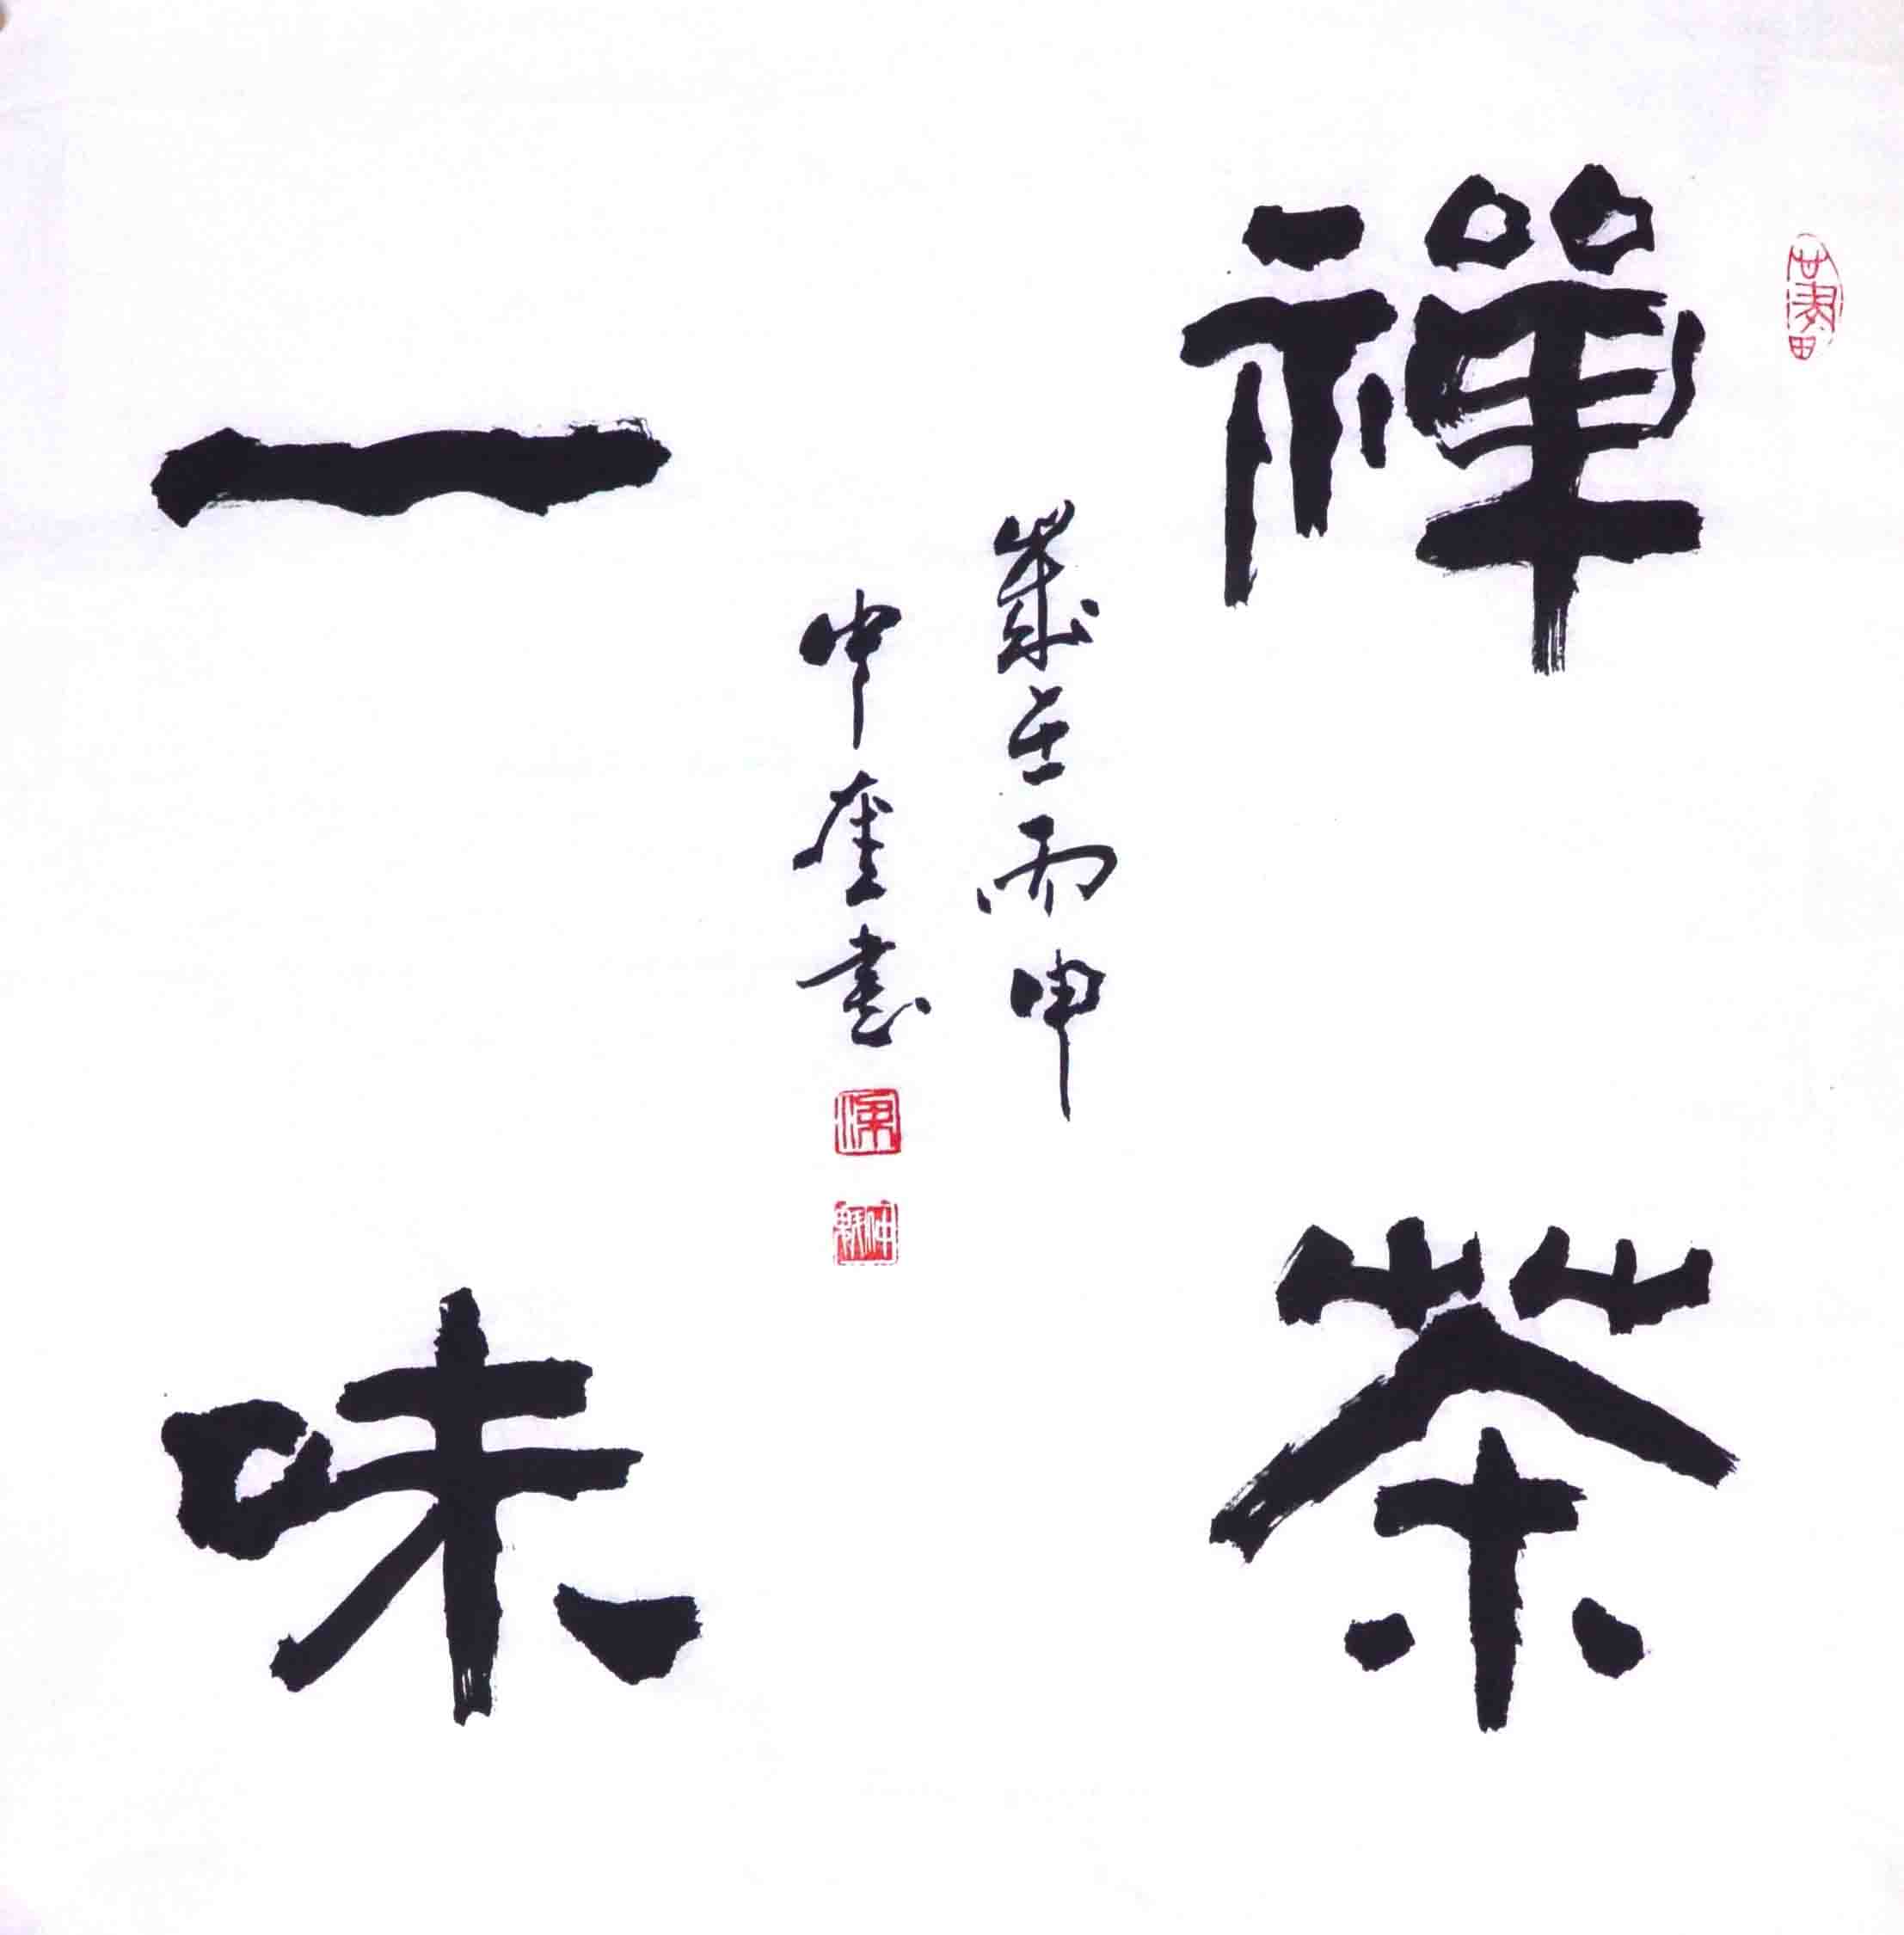 禪茶
一味
歲在丙申
中奎書